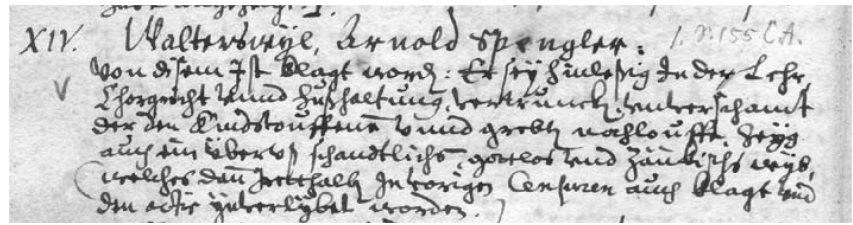 XIV. Walterswyl, Arnold Spengler. 1. V. 155 CA.
Von disem Ist klagt word: Er sey hinlesig In der Lehr,
Chorgricht vnnd hußhaltung, vertrunck, vnverschamt
der den Kindstouffenen vnnd grebt nachlouffe, heyg
auch ein übervß schandtlichs, gottlos vnd zänkischs wyb,
welches dan Irenthalb In vorigen Censuren auch klagt vnd
den actis ynverlybet worden.